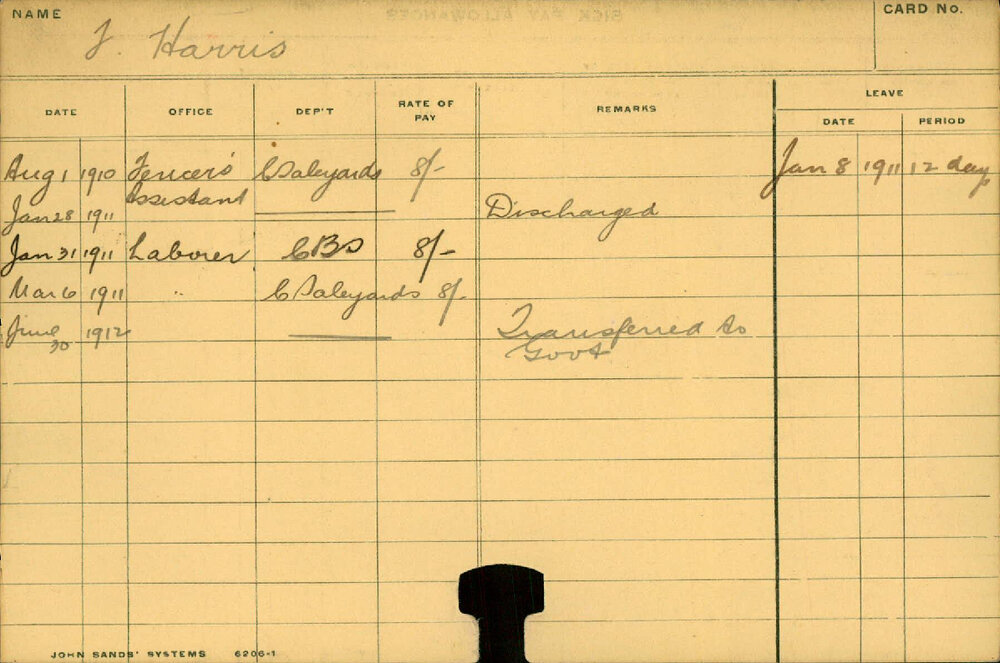 NAME
CARD No.
J. Harris
DATE OFFICE DEP'T RATE OF PAY REMARKS LEAVE
DATE PERIOD
Aug 1 1910 Fencer's Assistant C Saleyards 8/- Jan 8 1911 12 days
Jan 28 1911 Discharged
Jan 31 1911 Laborer CBS 8/-
Mar 6 1911 " C Saleyards 8/-
June 30 1912 Transferred to Govt
JOHN SANDS' SYSTEMS 6206-1